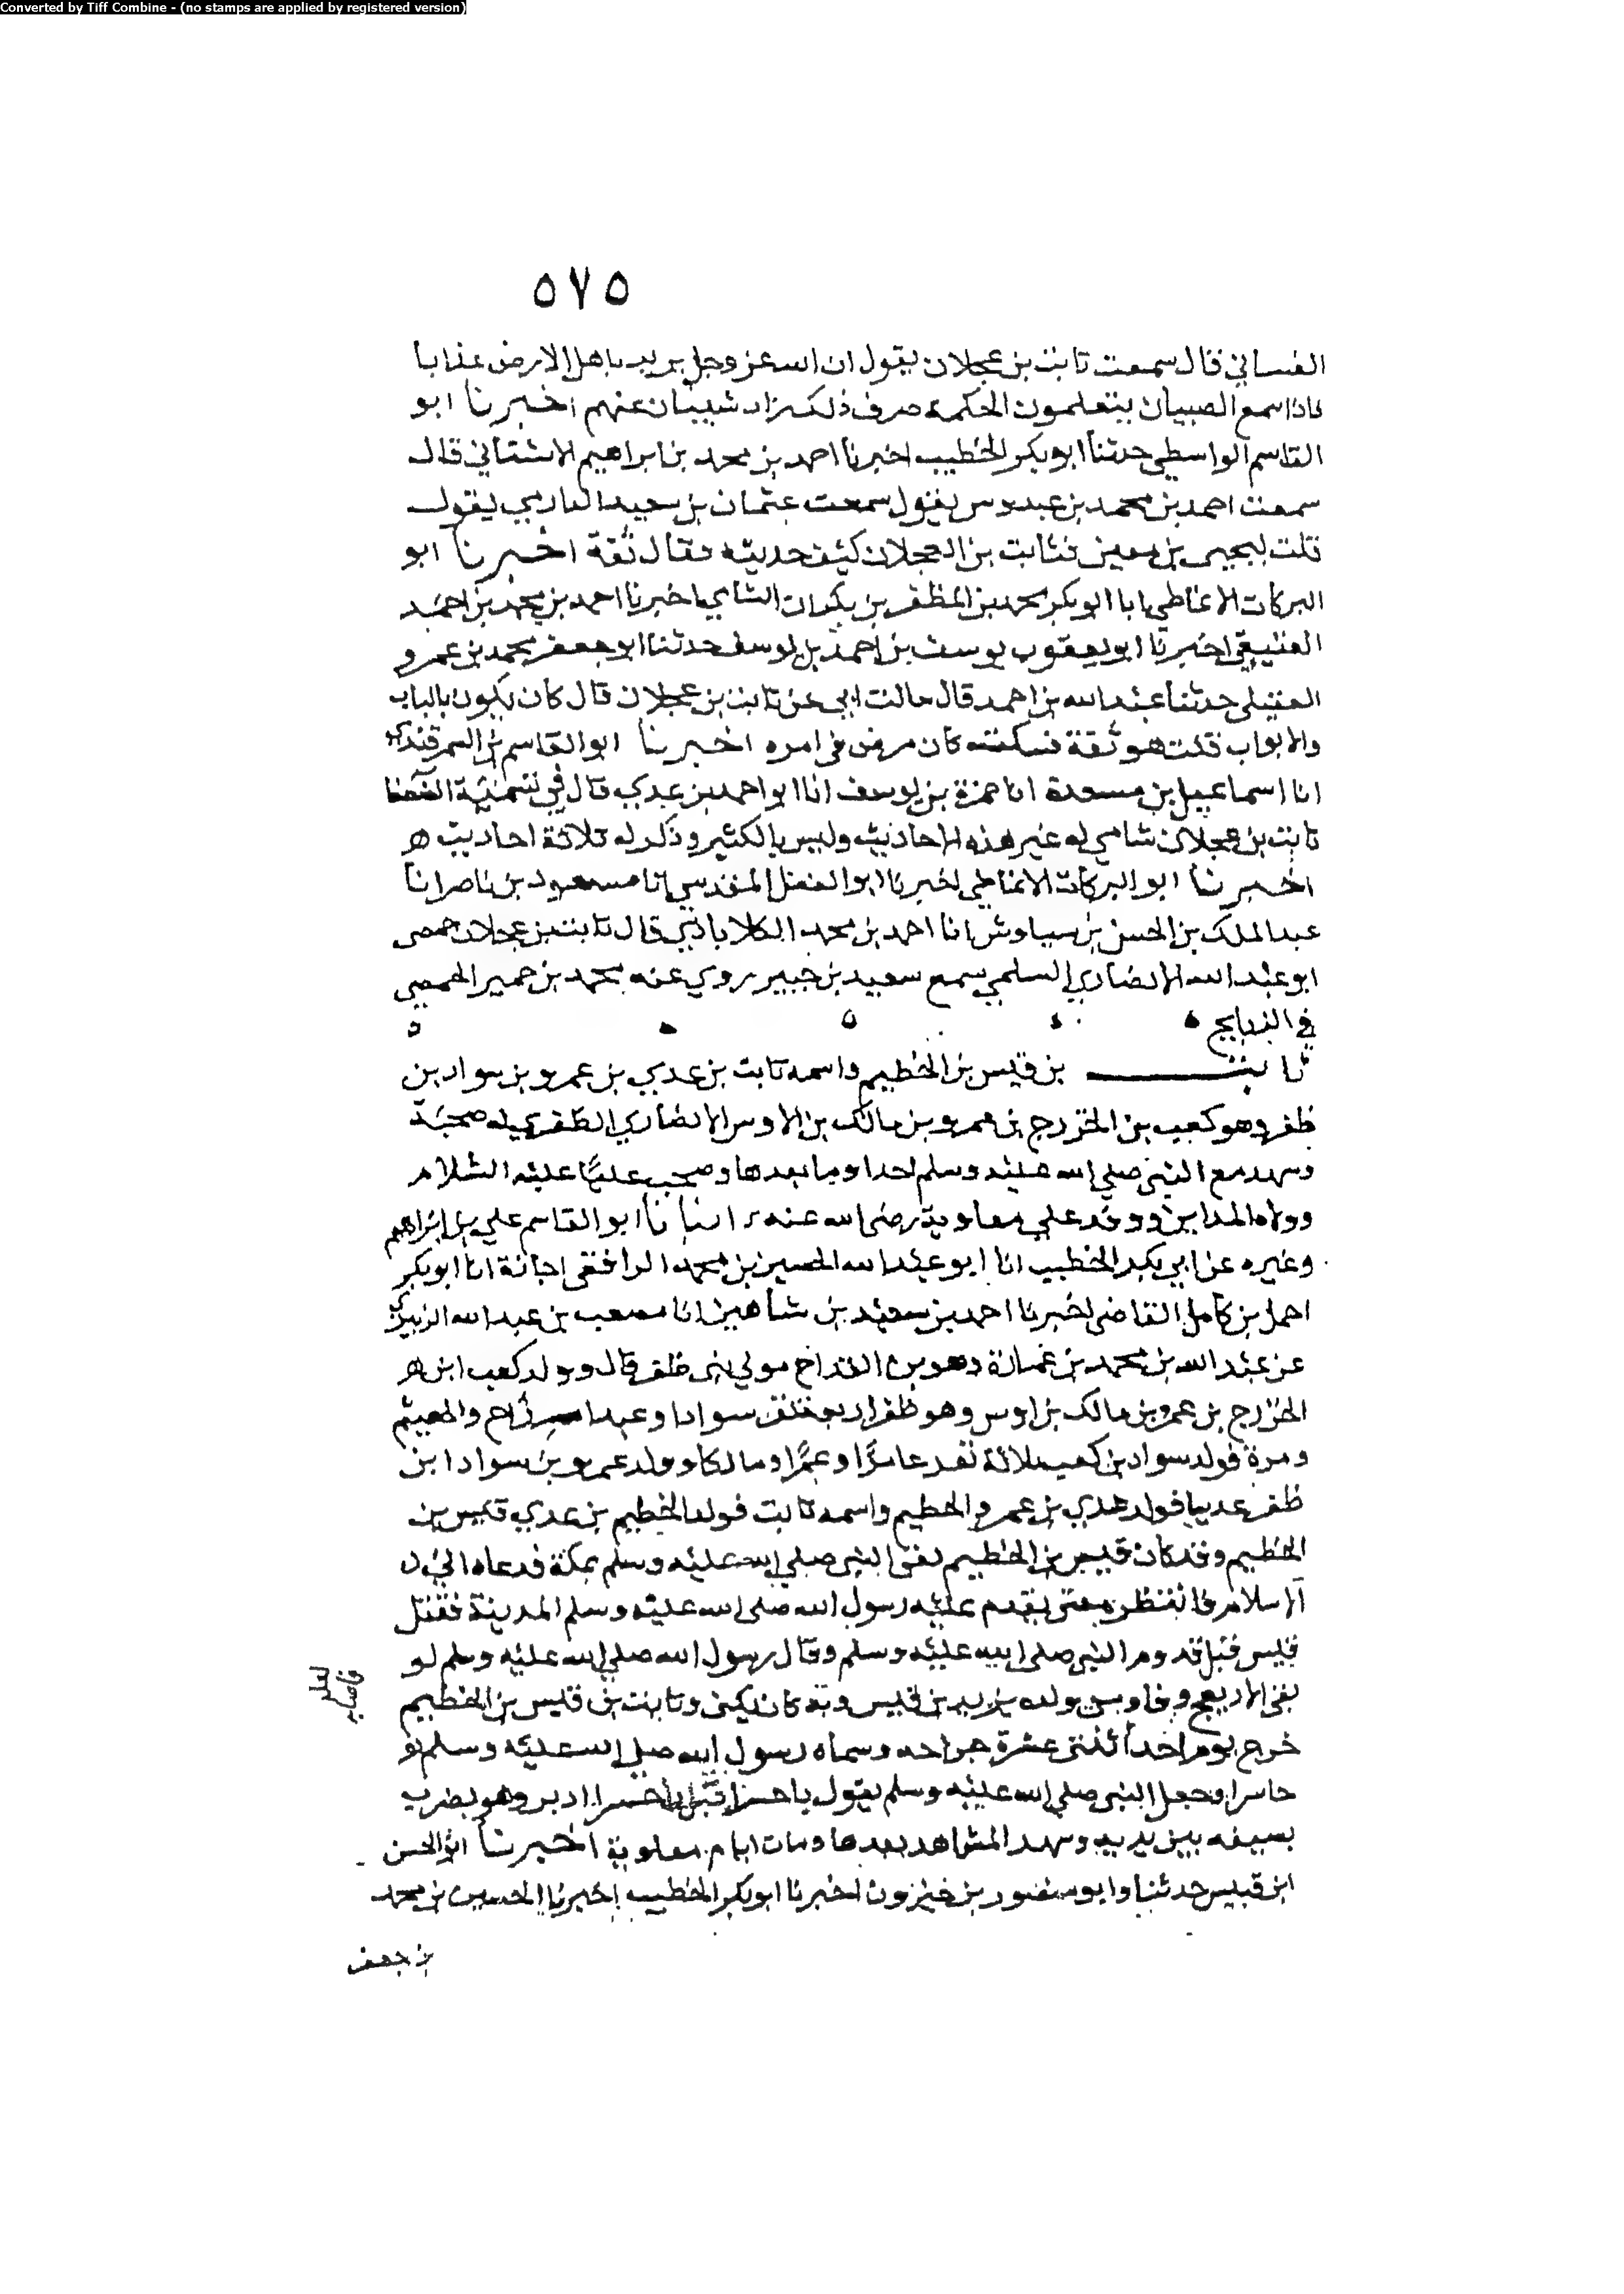 Converted by Tiff Combine - (no stamps are applied by registered version)
٥٧٥
الغساني قال سمعت ثابت بن عجلان يقول ان الله عز وجل يريد باهل الارض عذابا
فاذا سمع الصبيان يتعلمون الحكمة صرف ذلك زاد شيبان عنهم اخبرنا ابو
القاسم الواسطي حدثنا ابو بكر الخطيب اخبرنا احمد بن محمد بن ابراهيم الاشناني قال
سمعت احمد بن محمد بن عبدوس يقول سمعت عثمان بن سعيد الدارمي يقول
قلت ليحيى بن معين فثابت بن العجلان كيف حديثه فقال ثقة اخبرنا ابو
البركات الانماطي انا ابو بكر محمد بن المظفر بن بكران الشامي اخبرنا احمد بن محمد بن احمد
العتيقي اخبرنا ابو يعقوب يوسف بن احمد بن يوسف حدثنا ابو جعفر محمد بن عمرو
العقيلي حدثنا عبد الله بن احمد قال سالت ابي عن ثابت بن عجلان قال كان يكون بالباب
والابواب قلت هو ثقة فسكت كان مرض في امره اخبرنا ابو القاسم بن السمرقندي
انا اسماعيل بن مسعدة انا حمزة بن يوسف انا ابو احمد بن عدي قال في تسمية
ثابت بن عجلان شامي له غير هذه الاحاديث وليس بالكثير وذكر له ثلاثة احاديث ه
اخبرنا ابو البركات الانماطي اخبرنا ابو الفضل المقدسي انا مسعود بن ناصر انا
عبد الملك بن الحسن بن سياوش انا احمد بن محمد الكلاباذي قال ثابت بن عجلان حمصي
ابو عبد الله الانصاري السلمي سمع سعيد بن جبير روى عنه محمد بن حمير الحمصي
في الذبايح
ثابت بن قيس بن الخطيم واسمه ثابت بن عدي بن عمرو بن سواد بن
ظفر وهو كعب بن الخزرج بن عمرو بن مالك بن الاوس الانصاري الظفري له صحبة
وشهد مع النبي صلى الله عليه وسلم احدا وما بعدها وصحب عليا عليه السلام
وولاه المداين ووفد على معاوية رضى الله عنه انبانا ابو القاسم علي بن ابراهيم
وغيره عن ابي بكر الخطيب انا ابو عبد الله الحسين بن محمد الرافقي اجازة انا ابو بكر
احمد بن كامل القاضي اخبرنا احمد بن سعيد بن شاهين انا مصعب بن عبد الله الزبيري
عن عبد الله بن محمد بن عمارة وهو بن القداح مولى بني ظفر قال وولد كعب ابن ه
الخزرج بن عمرو بن مالك بن اوس وهو ظفر اربعة نفر سوادا وعبد رزاح والهيثم
ومرة فولد سواد بن كعب ثلاثة نفر عامرا وعمرا ومالكا وولد عمرو بن سواد ابن
ظفر عديا فولد عدي بن عمرو الخطيم واسمه ثابت فولد الخطيم بن عدي قيس بن
الخطيم وقد كان قيس بن الخطيم لقى النبي صلى الله عليه وسلم بمكة فدعاه الى
الاسلام فانتظر حتى يقدم عليه رسول الله صلى الله عليه وسلم المدينة فقتل
قيس قبل قدوم النبي صلى الله عليه وسلم وقال رسول الله صلى الله عليه وسلم لو
بقى الاديعج ومن ولده يزيد بن قيس وبه كان يكنى وثابت بن قيس بن الخطيم
خرج يوم احد اثنتي عشرة جراحة وسماه رسول الله صلى الله عليه وسلم
حاسرا وجعل النبي صلى الله عليه وسلم يقول يا حاسر اقبل يا حاسر ادبر وهو يضرب
بسيفه بين يديه وشهد المشاهد بعدها ومات ايام معاوية اخبرنا ابو الحسن
ابن قبيس حدثنا وابو منصور بن خيرون اخبرنا ابو بكر الخطيب اخبرنا الحسين بن محمد
بن جعفر